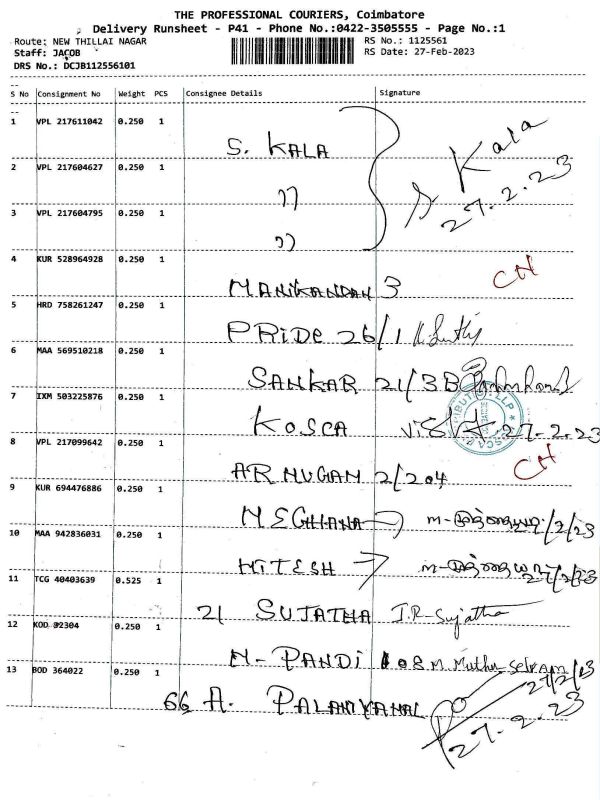 THE PROFESSIONAL COURIERS, Coimbatore
Delivery Runsheet - P41 - Phone No.:0422-3505555 - Page No.:1
Route: NEW THILLAI NAGAR RS No.: 1125561
Staff: JACOB RS Date: 27-Feb-2023
DRS No.: DCJB112556101
S No Consignment No Weight PCS Consignee Details Signature
1 VPL 217611042 0.250 1
S. KALA S Kala
27.2.23
2 VPL 217604627 0.250 1
"
3 VPL 217604795 0.250 1
"
4 KUR 528964928 0.250 1
MANIKANDAN 3 CH
5 HRD 758261247 0.250 1
PRIDE 26/1
6 MAA 569510218 0.250 1
SANKAR 21/3B
7 IXM 503225876 0.250 1
KOSCA 27-2-23
8 VPL 217099642 0.250 1
ARMUGAM 2/204 CH
9 KUR 694476886 0.250 1
MEGHANA
10 MAA 942836031 0.250 1
HITESH
11 TCG 40403639 0.525 1
21 SUJATHA J.R-Sujatha
12 KOD 02304 0.250 1
M-PANDI 108 M. Muthu-Selvam
27/2/23
13 BOD 364022 0.250 1
66 A. PALANIYAMAL
27-2-23